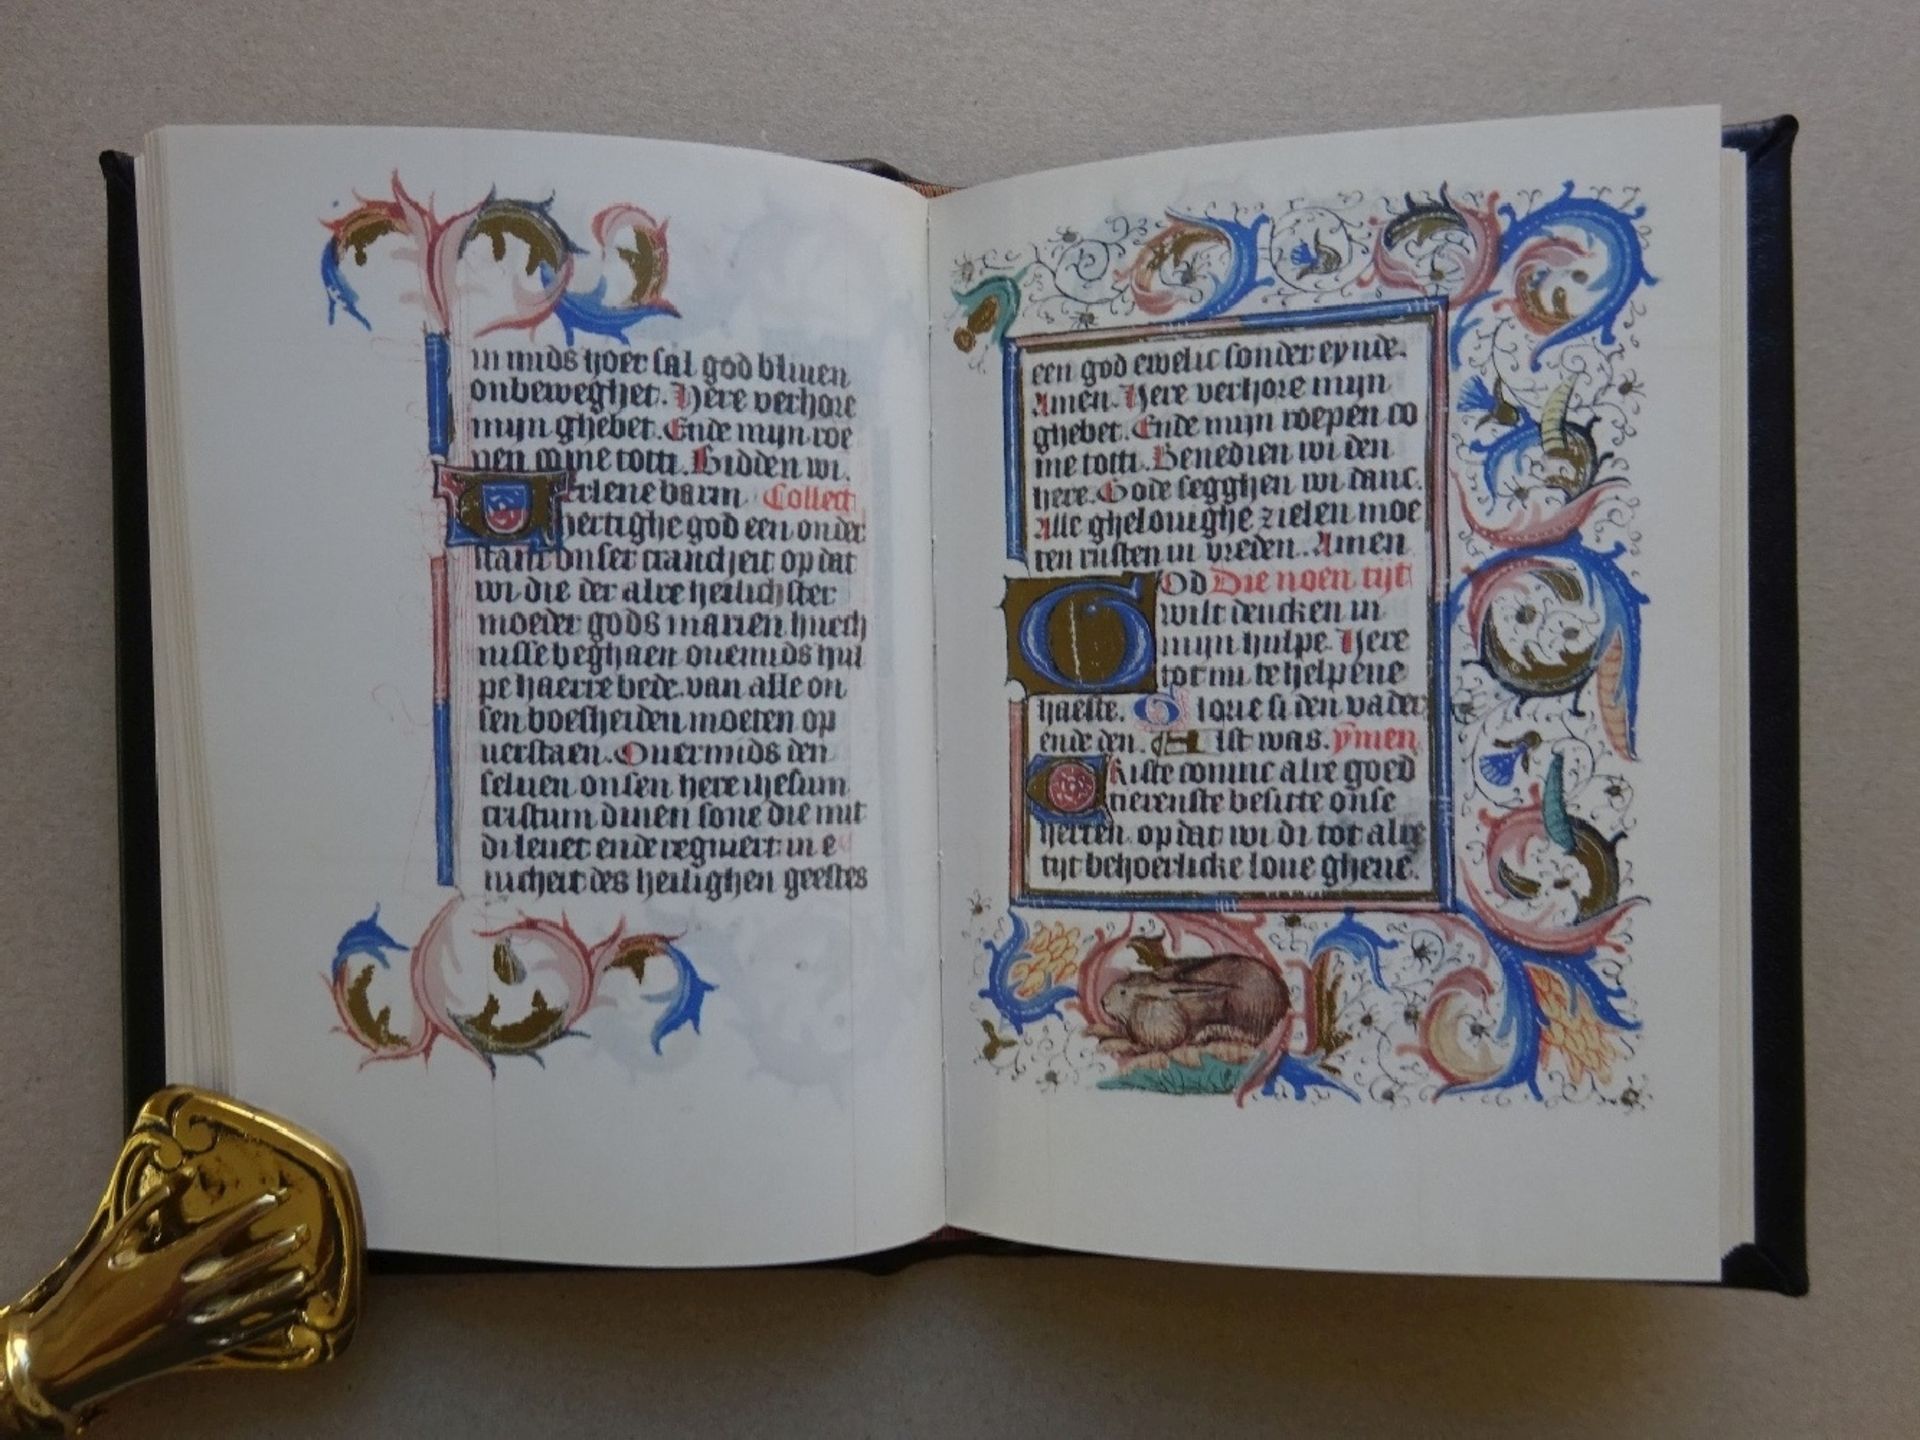 in mids hoer sal god bliuen
onbeweghet. Here verhore
mijn ghebet. Ende mijn roe
pen come totti. Bidden wi.
Verlene barm Collect
hertighe god een onder
stant onser crancheit op dat
wi die der alre heilichster
moeder gods marien huech
nisse beghaen ouermids hul
pe haerre bede. van alle on
sen boesheiden moeten op
uerstaen. Ouermids den
seluen onsen here ihesum
cristum dinen sone die mit
di leuet ende regniert in e
nicheit des heilighen geestes
een god ewelic sonder eynde.
Amen. Here verhore mijn
ghebet. Ende mijn roepen co
me totti. Benedien wi den
here. Gode segghen wi danc.
Alle ghelouighe zielen moe
ten rusten in vreden. Amen
God Die noen tijt
wilt dencken in
mijn hulpe. Here
tot mi te helpene
haeste. Glorie si den vader
ende den. Alst was. ymen
Kriste comme alre goed
tierenste besitte onse
herten. op dat wi di tot alre
tijt behoerlicke loue gheue.